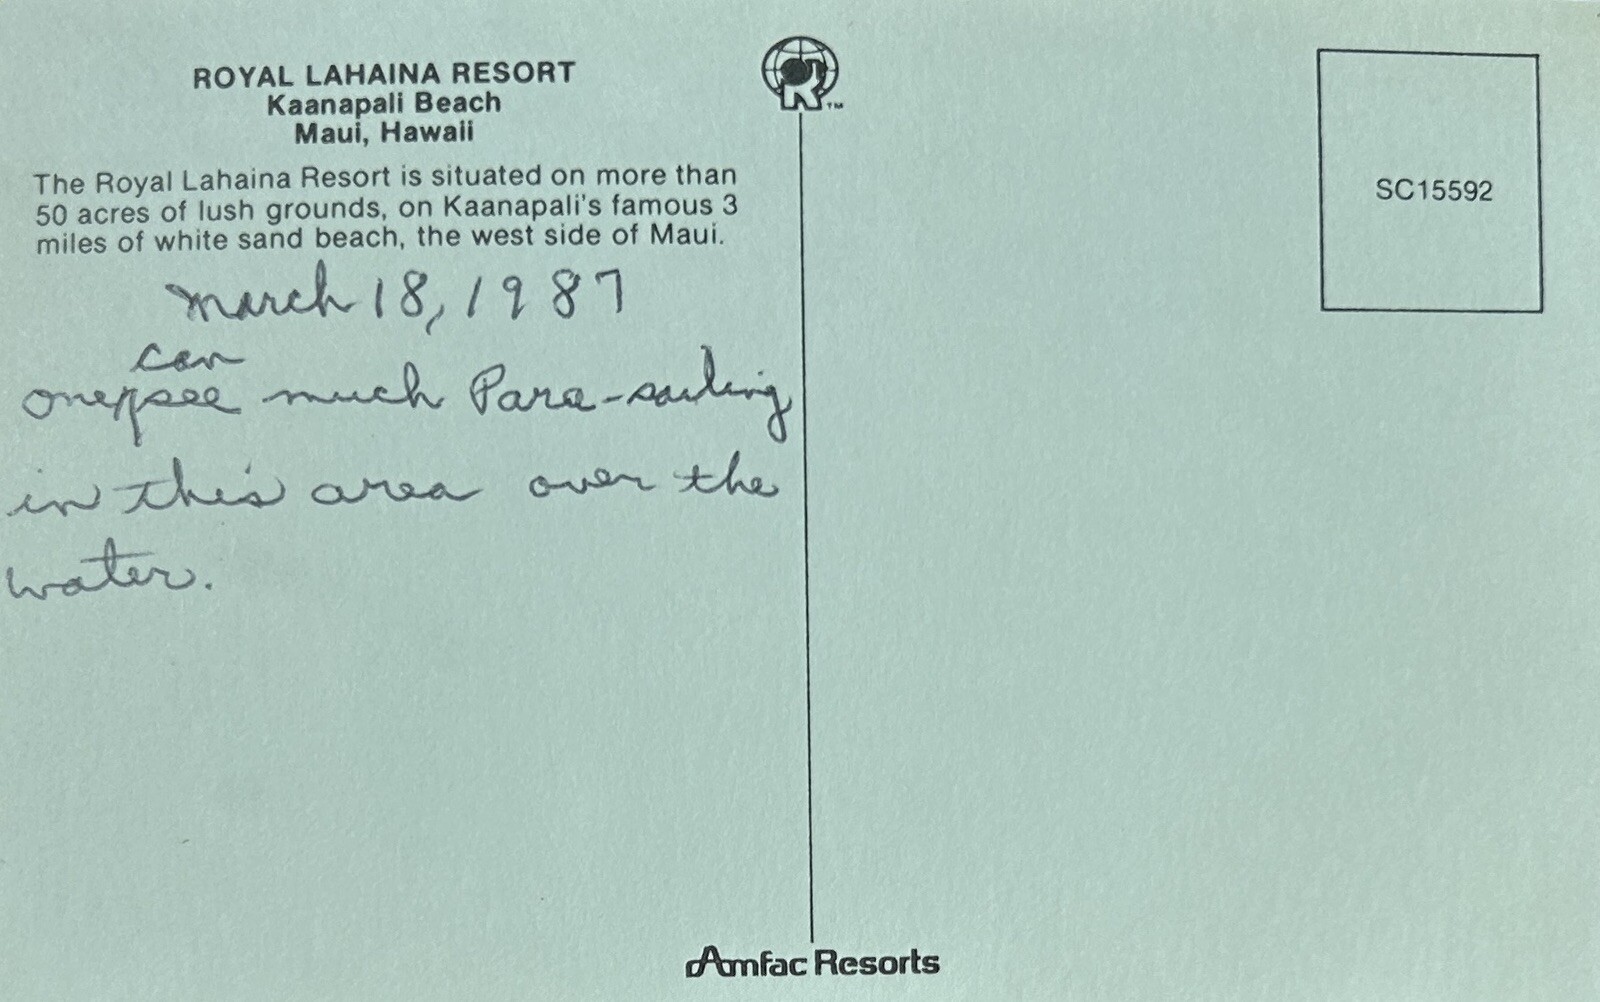 ROYAL LAHAINA RESORT
Kaanapali Beach
Maui, Hawaii
The Royal Lahaina Resort is situated on more than
50 acres of lush grounds, on Kaanapali's famous 3
miles of white sand beach, the west side of Maui.
March 18, 1987
can
one see much Para-sailing
in this area over the
water.
R TM
SC15592
Amfac Resorts